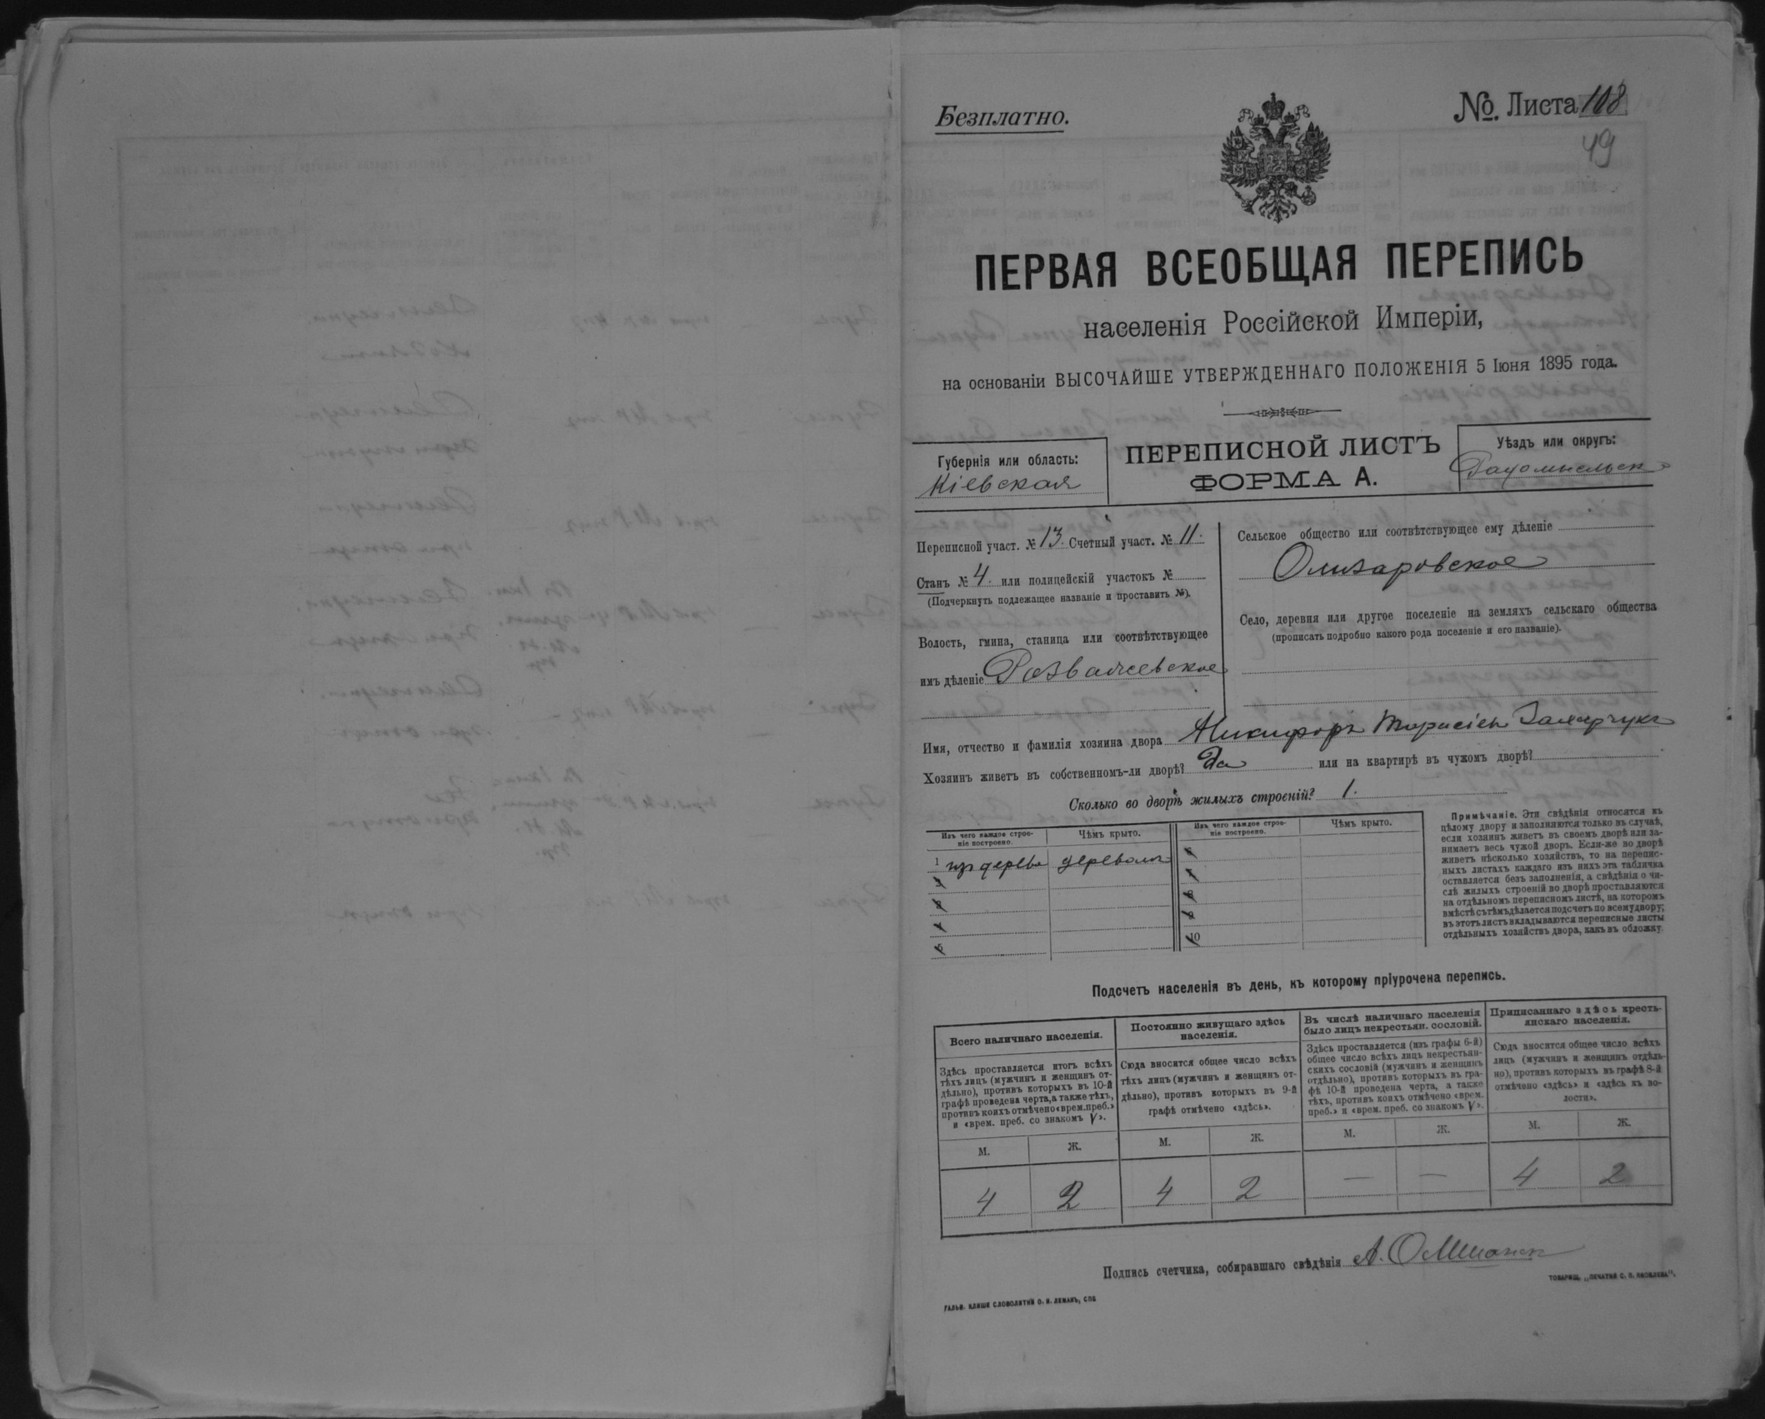 Безплатно.
№. Листа 108
49
ПЕРВАЯ ВСЕОБЩАЯ ПЕРЕПИСЬ
населенія Россійской Имперіи,
на основаніи ВЫСОЧАЙШЕ УТВЕРЖДЕННАГО ПОЛОЖЕНІЯ 5 Іюня 1895 года.
Губернія или область:
Кіевская
ПЕРЕПИСНОЙ ЛИСТЪ
ФОРМА А.
Уѣздъ или округъ:
Переписной участ. № 13. Счетный участ. № 11.
Станъ № 4. или полицейскій участокъ №
(Подчеркнуть подлежащее названіе и проставить №).
Волость, гмина, станица или соотвѣтствующее
имъ дѣленіе Розважевское
Сельское общество или соотвѣтствующее ему дѣленіе
Олизаровское
Село, деревня или другое поселеніе на земляхъ сельскаго общества
(прописать подробно какого рода поселеніе и его названіе).
Имя, отчество и фамилія хозяина двора Никифоръ Тарасіевъ Захарчукъ
Хозяинъ живетъ въ собственномъ-ли дворѣ? Да или на квартирѣ въ чужомъ дворѣ?
Сколько во дворѣ жилыхъ строеній? 1.
Изъ чего каждое строе-
ніе построено.
Чѣмъ крыто.
Изъ чего каждое строе-
ніе построено.
Чѣмъ крыто.
1 изъ дерева деревомъ
2
3
4
5
6
7
8
9
10
Примѣчаніе. Эти свѣдѣнія относятся къ
цѣлому двору и заполняются только въ случаѣ,
если хозяинъ живетъ въ своемъ дворѣ или за-
нимаетъ весь чужой дворъ. Если-же во дворѣ
живетъ нѣсколько хозяйствъ, то на перепис-
ныхъ листахъ каждаго изъ нихъ эта табличка
оставляется безъ заполненія, а свѣдѣнія о чи-
слѣ жилыхъ строеній во дворѣ проставляются
на отдѣльномъ переписномъ листѣ, на которомъ
вмѣстѣ съ тѣмъ дѣлается подсчетъ по всему двору;
въ этотъ листъ вкладываются переписные листы
отдѣльныхъ хозяйствъ двора, какъ въ обложку.
Подсчетъ населенія въ день, къ которому пріурочена перепись.
Всего наличнаго населенія.
Здѣсь проставляется итогъ всѣхъ
тѣхъ лицъ (мужчинъ и женщинъ от-
дѣльно), противъ которыхъ въ 10-й
графѣ проведена черта, а также тѣхъ,
противъ коихъ отмѣчено «врем. преб.»
и «врем. преб. со знакомъ V».
Постоянно живущаго здѣсь
населенія.
Сюда вносится общее число всѣхъ
тѣхъ лицъ (мужчинъ и женщинъ от-
дѣльно), противъ которыхъ въ 9-й
графѣ отмѣчено «здѣсь».
Въ числѣ наличнаго населенія
было лицъ некрестьян. сословій.
Здѣсь проставляется (изъ графы 6-й)
общее число всѣхъ лицъ некрестьян-
скихъ сословій (мужчинъ и женщинъ
отдѣльно), противъ которыхъ въ гра-
фѣ 10-й проведена черта, а также
тѣхъ, противъ коихъ отмѣчено «врем.
преб.» и «врем. преб. со знакомъ V».
Приписаннаго здѣсь кресть-
янскаго населенія.
Сюда вносится общее число всѣхъ
лицъ (мужчинъ и женщинъ отдѣль-
но), противъ которыхъ въ графѣ 8-й
отмѣчено «здѣсь» и «здѣсь въ во-
лости».
М. Ж. М. Ж. М. Ж. М. Ж.
4 2 4 2 — — 4 2
Подпись счетчика, собиравшаго свѣдѣнія А.
ГАЛЬВ. КЛИШЕ СЛОВОЛИТНИ О. И. ЛЕМАНЪ, СПБ
ТОВАРИЩ. „ПЕЧАТНЯ С. П. ЯКОВЛЕВА".